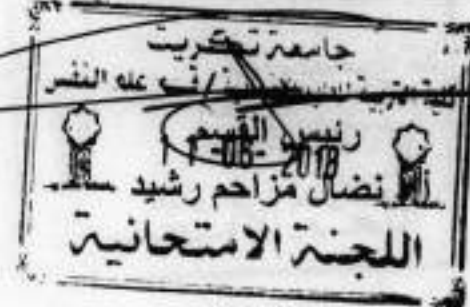 جامعة تكريت
كلية التربية للبنات / قسم علم النفس
رئيس القسم
11-06-2018
نضال مزاحم رشيد
اللجنة الامتحانية